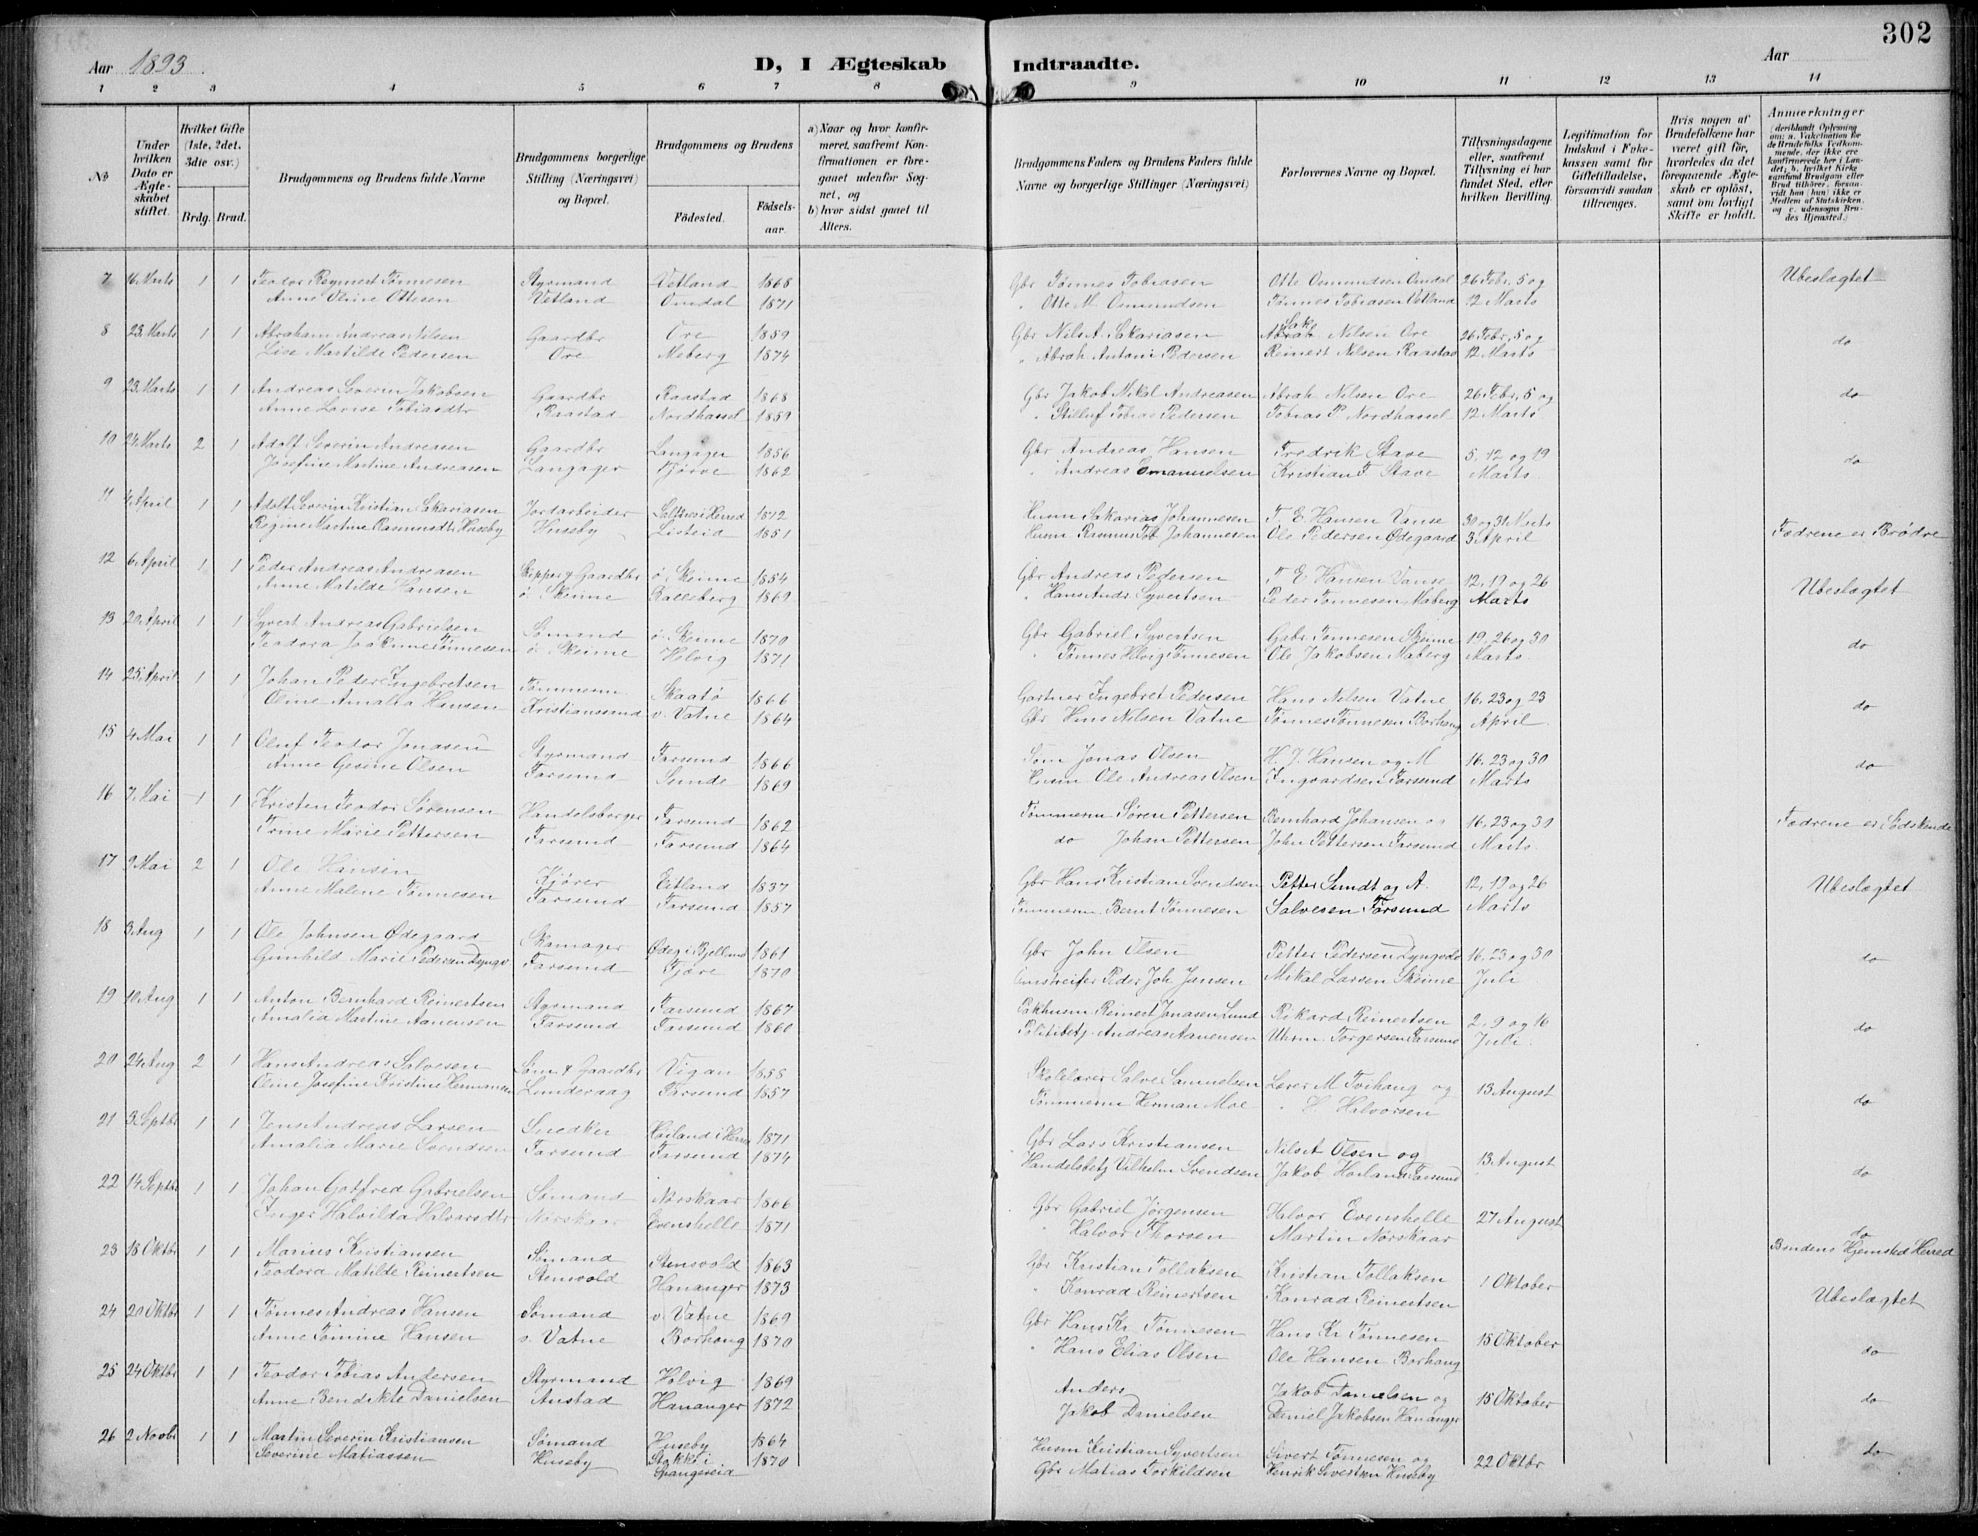 302
Aar 1893.
D, I Ægteskab Indtraadte.
Aar
1 2 3 4 5 6 7 8 9 10 11 12 13 14
№
Under hvilken Dato er Ægteskabet stiftet.
Hvilket Gifte (1ste, 2det, 3die osv.)
Brdg. Brud.
Brudgommens og Brudens fulde Navne
Brudgommens borgerlige Stilling (Næringsvei) og Bopæl.
Brudgommens og Brudens
Fødested.
Fødselsaar.
a) Naar og hvor konfirmeret, saafremt Konfirmationen er foregaaet udenfor Sognet, og
b) hvor sidst gaaet til Alters.
Brudgommens Faders og Brudens Faders fulde Navne og borgerlige Stillinger (Næringsvei)
Forlovernes Navne og Bopæl.
Tillysningsdagene eller, saafremt Tillysning ei har fundet Sted, efter hvilken Bevilling.
Legitimation for Indskud i Enkekassen samt for Giftetilladelse, forsaavidt saadan tiltrænges.
Hvis nogen af Brudefolkene har været gift før, hvorledes da det foregaaende Ægteskab er opløst, samt om lovligt Skifte er holdt.
Anmærkninger (deriblandt Oplysning om: a. Vakcination for de Brudefolks Vedkommende, der ikke ere konfirmerede her i Landet; b. hvilket Kirkesamfund Brudgom eller Brud tilhører, forsaavidt han (hun) ikke er Medlem af Statskirken, og c. udensogns Brudes Hjemsted.)
7 16 Marts 1 1 Teodor Regnest Tønnesen Styrmand Vetland 1868 Gbr Tønnes Tobiasen Otte Omundsen Omdal 26 Febr, 5 og Ubeslægtet
Anne Oline Ottesen Vetland Omdal 1871 " Otte M. Omundsen Tønnes Tobiasen Vetland 12 Marts
8 23 Marts 1 1 Abraham Andreas Nilsen Gaardbr Ore 1859 Gbr Nils A. Sakariasen Nilsen Ore 26 Febr, 5 og do
Lise Martilde Pedersen Ore Meberg 1874 " Abrah Antoni Pedersen Reinert Nilsen Raastad 12 Marts
9 23 Marts 1 1 Andreas Severin Jakobsen Gaardbr Raastad 1868 Gbr Jakob Mikal Andreasen Abrah Nilsen Ore 26 Febr, 5 og do
Anne Larise Tobiasdtr Raastad Nordhassel 1859 " Tobias Pedersen Tobias P. Nordhassel 12 Marts
10 24 Marts 2 1 Adolf Severin Andreasen Gaardbr Langager 1856 Gbr Andreas Hansen Fredrik Stave 5, 12 og 19 do
Josefine Martine Andreasen Langager Tjørve 1862 " Andreas Emanuelsen Kristian F. Stave Marts
11 4 April 1 1 Adolf Severin Kristian Sakariasen Jordarbeider i Herred 1872 Husm Sakarias Johannesen T. E. Hansen Vanse 30 og 31 Marts Fædrene er Brødre
Regine Martine Rasmusdtr Huseby Huseby Listeid 1851 Husm Rasmus Tob Johannesen Ole Pedersen Ødegaard 3 April
12 6 April 1 1 Peder Andreas Andreasen Skipper & Gaardbr ø. Skeime 1854 Gbr Andreas Pedersen T. E. Hansen Vanse 12, 19 og 26 Ubeslægtet
Anne Matilde Hansen ø. Skeime Kalleberg 1869 " Hans Andr. Syvertsen Peder Tønnesen Maberg Marts
13 20 April 1 1 Syvert Andreas Gabrielsen Sømand ø. Skeime 1870 Gbr Gabriel Syvertsen Gabr Tønnesen Skeime 19, 26 og 30 do
Teodora Joakime Tønnesen ø. Skeime Hølvig 1871 " Tønnes Hølvig Tønnesen Ole Jakobsen Maberg Marts
14 25 April 1 1 Johan Peder Ingebretsen Tømmerm. Skaatø 1866 Gartner Ingebret Pedersen Hans Nilsen Vatne 16, 23 og 23 do
Oline Amalia Hansen Kristianssund v. Vatne 1864 Gbr Hans Nilsen Vatne Tønnes Tønnesen Borhaug April
15 4 Mai 1 1 Oluf Teodor Jonasen Styrmand Farsund 1866 Søm Jonas Olsen H. J. Hansen og M do
Anne Gesine Olsen Farsund Sunde 1869 Husm Ole Andreas Olsen Ingvardsen Farsund 16, 23 og 30 Marts
16 7 Mai 1 1 Kristen Teodor Sørensen Handelsborger Farsund 1862 Tømmerm Søren Pettersen Bernhard Johansen og 16, 23 og 30 Fædrene er Sødskende
Trine Marie Pettersen Farsund Farsund 1864 do Johan Pettersen John Pettersen Farsund Marts
17 9 Mai 2 1 Ole Hansen Kjører Eitland 1837 Gbr Hans Kristian Svendsen Petter Sundt og A. 12, 19 og 26 Ubeslægtet
Anne Malene Tønnesen Farsund Farsund 1857 Tømmerm. Bernt Tønnesen Salvesen Farsund Marts
18 3 Aug 1 1 Ole Johnsen Ødegaard Skomager Ødeg i Bjelland 1861 Gbr John Olsen Petter Pedersen Lyngsde 16, 23 og 30 do
Gunhild Marie Pedersen Farsund Fjære 1870 Peder Joh Jansen Mikal Larsen Skeime Juli
19 10 Aug 1 1 Anton Bernhard Reinertsen Styrmand Farsund 1867 Pakhusm Reinert Jonasen Lund Rikard Reinertsen 2, 9 og 16 do
Amalia Martine Aanensen Farsund Farsund 1860 Politibetj. Andreas Aanensen Uhrm. Torgersen Farsund Juli
20 24 Aug 2 1 Hans Andreas Salvesen Søm. & Gaardbr Vigan 1858 Skolelærer Salve Samuelsen Lærer M Tvihaug og 13 August do
Oline Josefine Kristine Hermansen Lunderaag Farsund 1857 Tømmerm Herman Moe " H Halvorsen
21 3 Septbr 1 1 Jens Andreas Larsen Snedker Høiland i Herred 1871 Gbr Lars Kristiansen Olsen og 13 August do
Amalia Marie Svendsen Farsund Farsund 1874 Handelsbetj Vilhelm Svendsen Jakob Høiland Farsund
22 14 Septbr 1 1 Johan Gotfred Gabrielsen Sømand Nørskaar 1866 Gbr Gabriel Jørgensen Halvor Evenshelle 27 August do
Inger Halvilda Halvorsdtr Nørskaar Evenshelle 1871 " Halvor Thorsen Martin Nørskaar
23 18 Oktbr 1 1 Marius Kristiansen Sømand Stensvold 1863 Gbr Kristian Tollaksen Kristian Tollaksen 1 Oktober Brudens Hjemsted Herred
Teodora Matilde Reinertsen Stensvold Hananger 1873 " Konrad Reinertsen Konrad Reinertsen Ubeslægtet
24 20 Oktbr 1 1 Tønnes Andreas Hansen Sømand v. Vatne 1869 Gbr Hans Kr. Tønnesen Hans Kr Tønnesen 15 Oktober do
Anne Tomine Hansen v. Vatne Borhaug 1870 " Hans Elias Olsen Ole Hansen Borhaug
25 24 Oktbr 1 1 Teodor Tobias Andersen Styrmand Hølvig 1869 Anders Jakob Danielsen og 15 Oktober do
Anne Bendikte Danielsen Austad Hananger 1872 Jakob Danielsen Daniel Jakobsen Hananger
26 2 Novbr 1 1 Martin Severin Kristiansen Sømand Huseby 1864 Husm Kristian Syvertsen Sivert Tønnesen og 22 Oktbr do
Severine Matiassen Huseby Stokke i Spangereid 1870 Gbr Matias Torkildsen Henrik Sivertsen Huseby